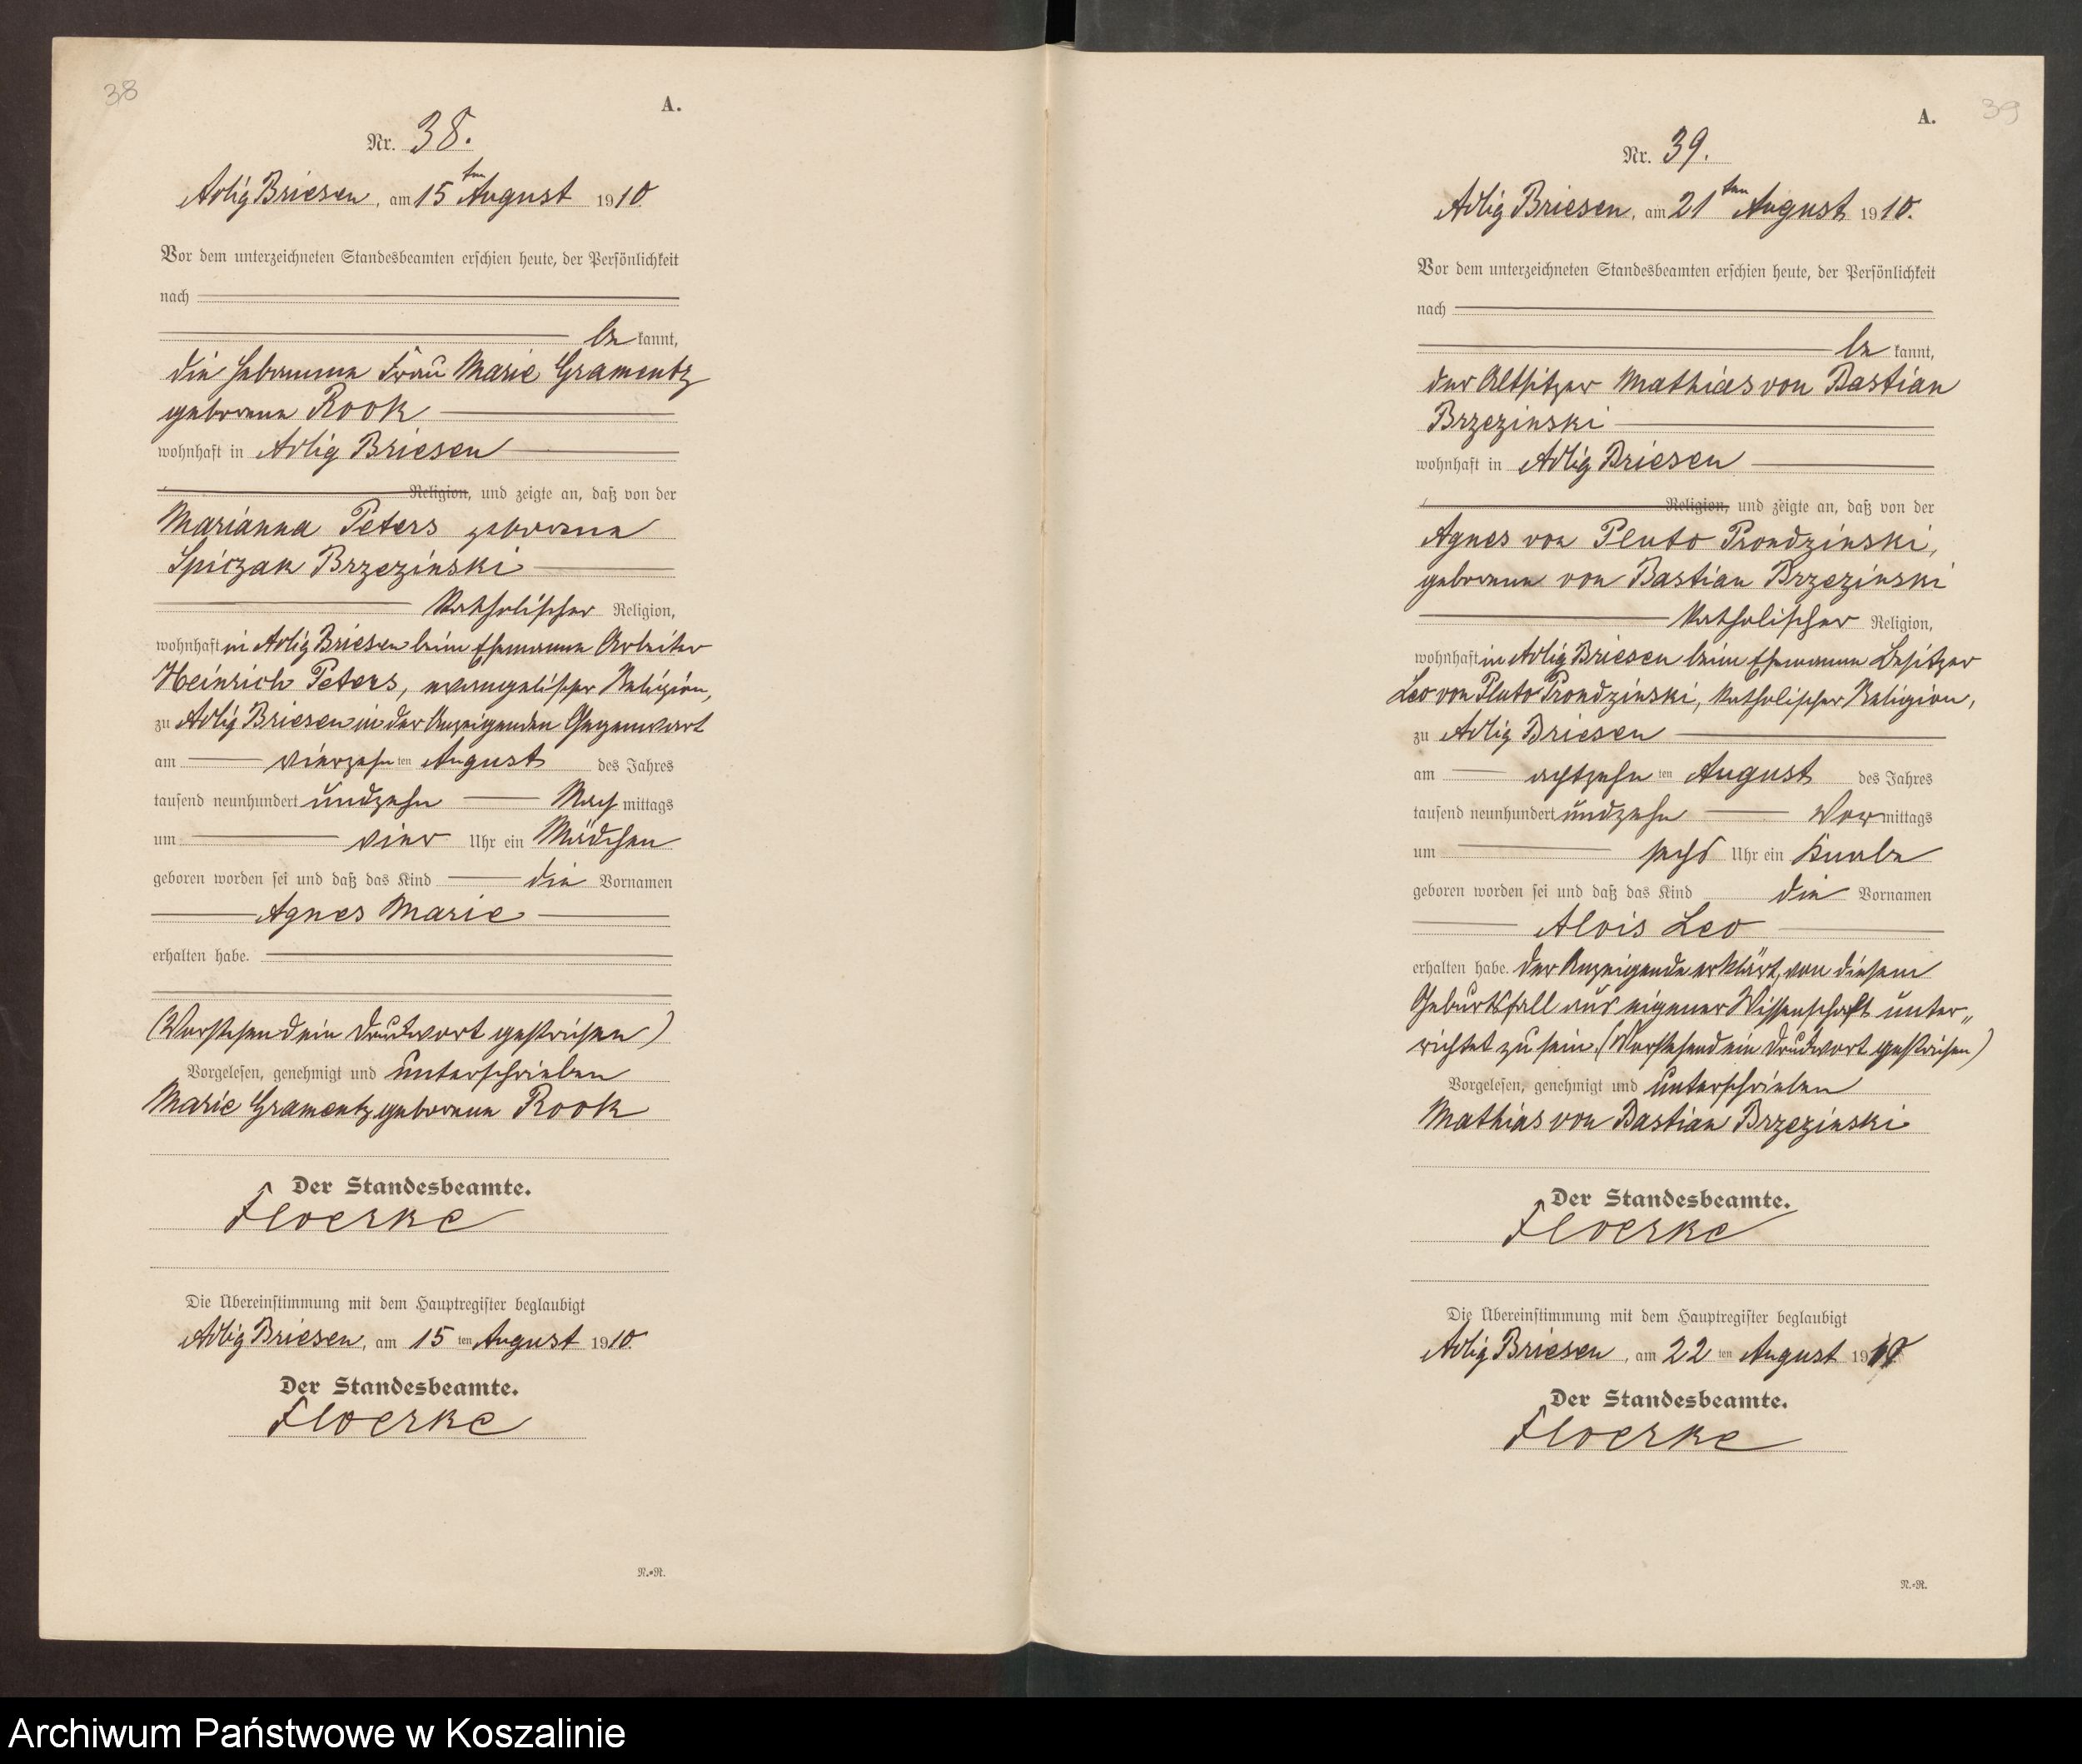 38
A.
Nr. 38.
Adlig Briesen, am 15ten August 1910.
Vor dem unterzeichneten Standesbeamten erschien heute, der Persönlichkeit
nach
be kannt,
die Hebamme Frau Marie Gramentz
geborene Rook
wohnhaft in Adlig Briesen
Religion, und zeigte an, daß von der
Marianna Peters geborene
Spiczak Brzezinski
katholischer Religion,
wohnhaft in Adlig Briesen beim Ehemanne Arbeiter
Heinrich Peters, evangelischer Religion,
zu Adlig Briesen in der Anzeigenden Gegenwart
am vierzehn ten August des Jahres
tausend neunhundert undzehn Nach mittags
um vier Uhr ein Mädchen
geboren worden sei und daß das Kind die Vornamen
Agnes Marie
erhalten habe.
(Vorstehend ein Druckwort gestrichen)
Vorgelesen, genehmigt und unterschrieben
Marie Gramentz geborene Rook
Der Standesbeamte.
Floerke
Die Übereinstimmung mit dem Hauptregister beglaubigt
Adlig Briesen, am 15 ten August 1910.
Der Standesbeamte.
Floerke
N.=R.
39
A.
Nr. 39.
Adlig Briesen, am 21ten August 1910.
Vor dem unterzeichneten Standesbeamten erschien heute, der Persönlichkeit
nach
be kannt,
der Altsitzer Mathias von Bastian
Brzezinski
wohnhaft in Adlig Briesen
Religion, und zeigte an, daß von der
Agnes von Pluto Prondzinski,
geborene von Bastian Brzezinski
katholischer Religion,
wohnhaft in Adlig Briesen beim Ehemanne Besitzer
Leo von Pluto Prondzinski, katholischer Religion,
zu Adlig Briesen
am achtzehn ten August des Jahres
tausend neunhundert undzehn Vor mittags
um sechs Uhr ein Knabe
geboren worden sei und daß das Kind die Vornamen
Alois Leo
erhalten habe. Der Anzeigende erklärt, von diesem
Geburtsfall aus eigener Wissenschaft unter„
richtet zu sein. (Vorstehend ein Druckwort gestrichen)
Vorgelesen, genehmigt und unterschrieben
Mathias von Bastian Brzezinski
Der Standesbeamte.
Floerke
Die Übereinstimmung mit dem Hauptregister beglaubigt
Adlig Briesen, am 22 ten August 1910
Der Standesbeamte.
Floerke
N.=R.
Archiwum Państwowe w Koszalinie